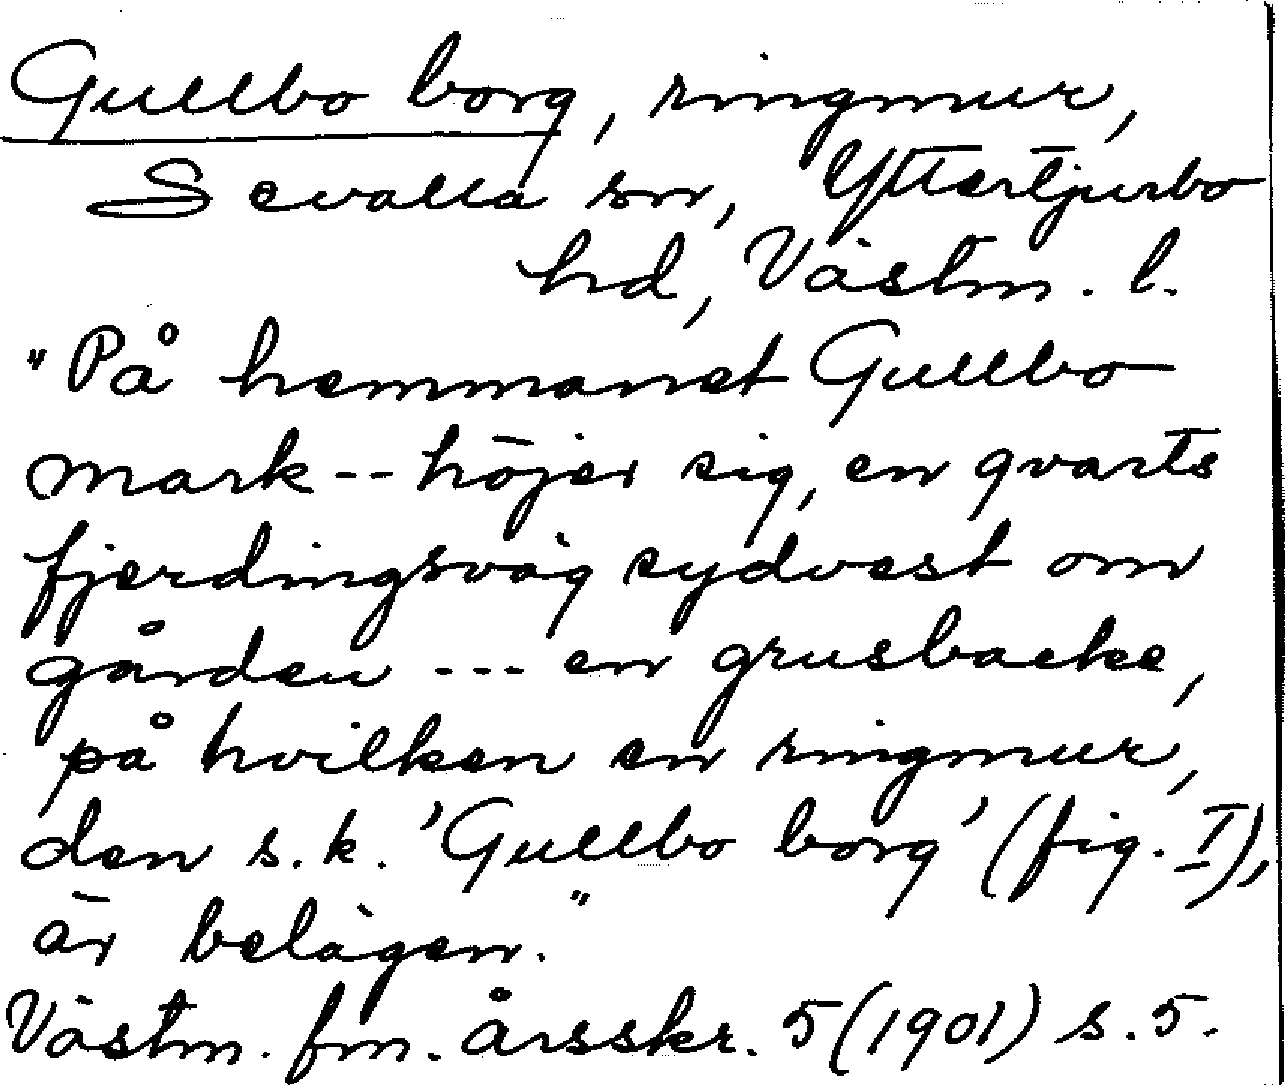 Gullbo borg, ringmur,
Sevalla sn, Yttertjurbo
hd, Västm. l.
"På hemmanet Gullbo
mark -- höjer sig, en qvarts
fjerdingsväg sydvest om
gården --- en grusbacke,
på hvilken en ringmur,
den s.k. 'Gullbo borg' (fig. I),
är belägen."
Västm. fm. årsskr. 5 (1901) s. 5.